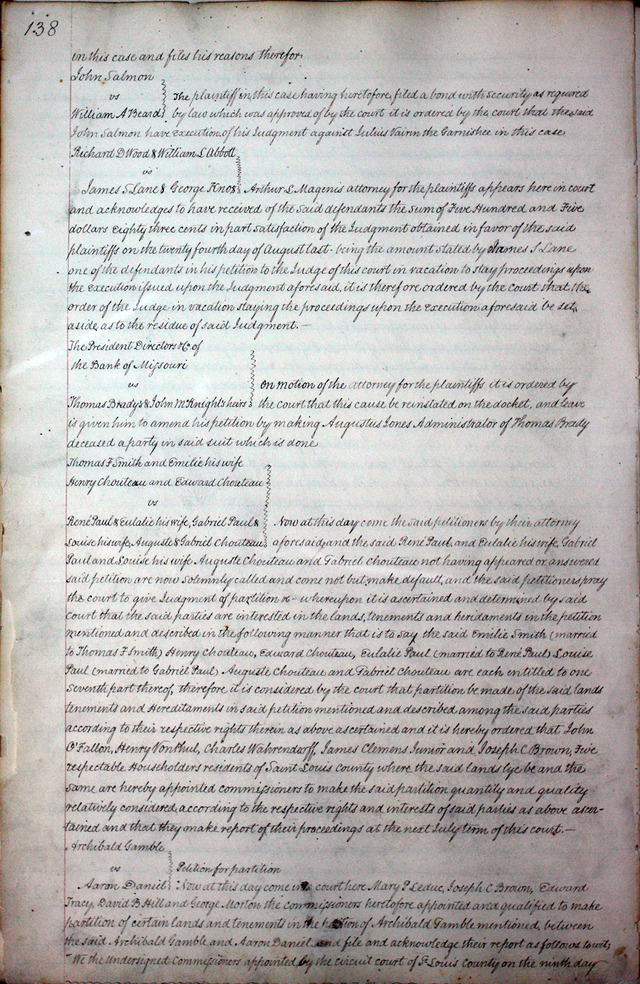 138
in this case and files his reasons therefor.
John Salmon
vs
The plaintiff in this case having heretofore filed a bond with security as required
William A Beard by law which was approved of by the court it is ordered by the court that the said
John Salmon have execution of his Judgment against Julius the Garnishee in this case
Richard D Wood & William L Abbott
vs
James S Lane & George Knos Arthur L Magenis attorney for the plaintiffs appears here in court
and acknowledges to have received of the said defendants the sum of Five Hundred and Five
dollars Eighty three cents in part satisfaction of the Judgment obtained in favor of the said
plaintiffs on the twenty fourth day of August last - being the amount stated by James S Lane
one of the defendants in his petition to the Judge of this court in vacation to stay proceedings upon
the execution issued upon the Judgment aforesaid, it is therefore ordered by the court that the
order of the Judge in vacation staying the proceedings upon the execution aforesaid be set
aside, as to the residue of said Judgment. —
The President Directors &c of
the Bank of Missouri
vs
on motion of the attorney for the plaintiffs it is ordered by
Thomas Bradys & John McKnights heirs the court that this cause be reinstated on the docket, and leave
is given him to amend his petition by making Augustus Jones Administrator of Thomas Brady
deceased a party in said suit which is done
Thomas F Smith and Emilie his wife
Henry Chouteau and Edward Chouteau
vs
René Paul & Eulalie his wife, Gabriel Paul & Now at this day come the said petitioners by their attorney
Louise his wife, Auguste & Gabriel Chouteau aforesaid, and the said René Paul, and Eulalie his wife, Gabriel
Paul and Louise his wife. Auguste Chouteau and Gabriel Chouteau not having appeared or answered
said petition are now solemnly called and come not but make default, and the said petitioners pray
the court to give Judgment of partition &c - whereupon it is ascertained and determined by said
court that the said parties are interested in the lands, tenements and heridaments in the petition
mentioned and described in the following manner that is to say the said Emilie Smith (married
to Thomas F Smith) Henry Chouteau, Edward Chouteau, Eulalie Paul (married to René Paul) Louise
Paul (married to Gabriel Paul) Auguste Chouteau and Gabriel Chouteau are each entitled to one
seventh part thereof, therefore it is considered by the court that partition be made of the said lands
tenements and Hereditaments in said petition mentioned and described among the said parties
according to their respective rights therein as above ascertained and it is hereby ordered that John
O'Fallon, Henry Vonphul, Charles Wahrendorff, James Clemens Junior and Joseph C Brown, Five
respectable Householders residents of Saint Louis County where the said lands lye be and the
same are hereby appointed commissioners to make the said partition quantity and quality
relatively considered, according to the respective rights and interests of said parties as above ascer-
tained and that they make report of their proceedings at the next July term of this court. —
Archibald Gamble
vs Petition for partition
Aaron Daniel Now at this day come into court here Mary P Leduc, Joseph C Brown, Edward
Tracy, David B Hill and George Morton the commissioners heretofore appointed and qualified to make
partition of certain lands and tenements in the petition of Archibald Gamble mentioned, between
the said Archibald Gamble and Aaron Daniel and file and acknowledge their report as follows to wit;
"We the Undersigned Commissioners appointed by the circuit court of St Louis County on the ninth day